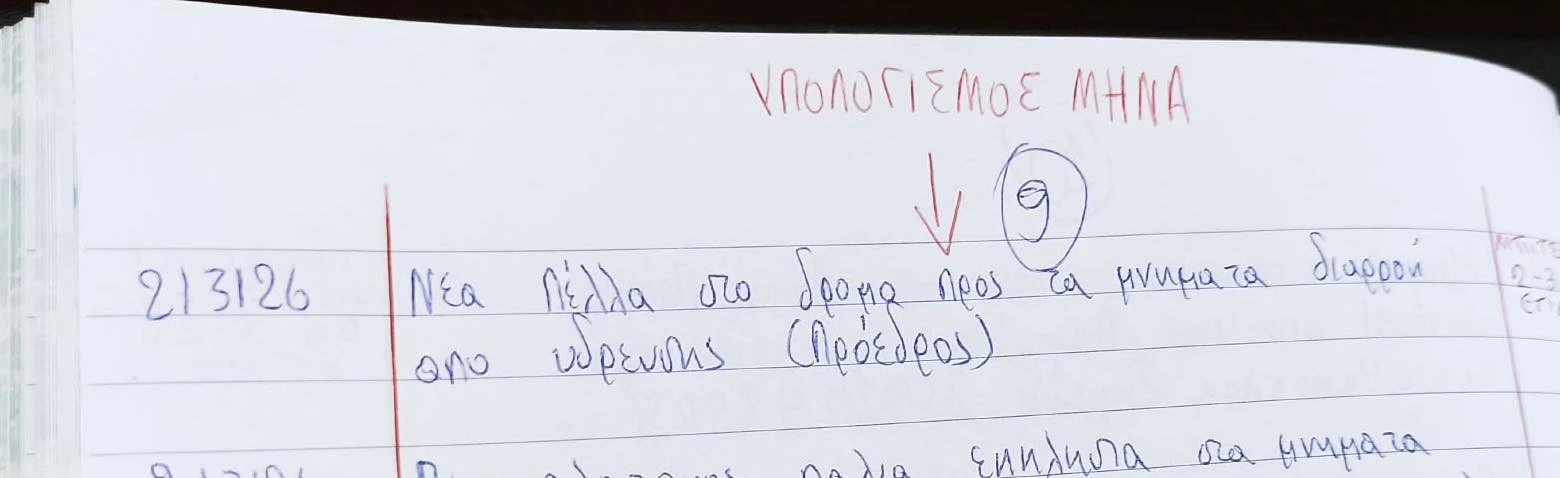 ΥΠΟΛΟΓΙΣΜΟΣ ΜΗΝΑ
9
2/3/26 Νεα Πέλλα στο δρομο προς τα μνηματα διαρροή
απο υδρευσης (Πρόεδρος)
παλια εκκλησια στα μνηματα